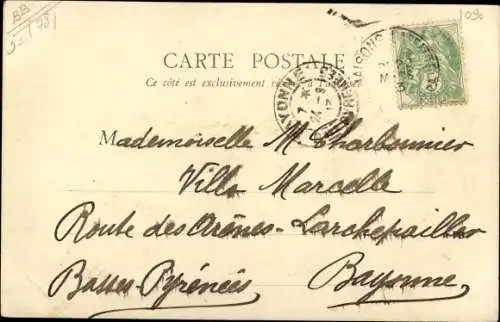 BB
1090
CARTE POSTALE
Ce côté est exclusivement réservé à l'adresse
BAYONNE
Mademoiselle M. Charbonnier
Villa Marcelle
Route des Arènes - Larchepailler
Basses-Pyrénées Bayonne